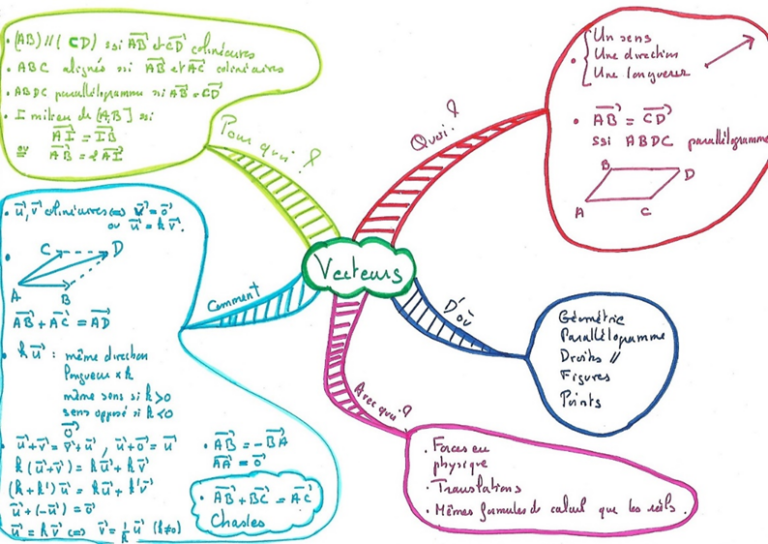 Vecteurs
Pourquoi ?
. (AB) // (CD) ssi AB⃗ et CD⃗ colinéaires
. ABC alignés ssi AB⃗ et AC⃗ colinéaires
. ABDC parallélogramme ssi AB⃗ = CD⃗
. I milieu de [AB] ssi
AI⃗ = IB⃗
ou AB⃗ = 2 AI⃗
Quoi ?
. { Un sens
Une direction
Une longueur
. AB⃗ = CD⃗
ssi ABDC parallélogramme
B D
A C
Comment
. u⃗, v⃗ colinéaires ⇔ u⃗ = 0⃗
ou u⃗ = k v⃗.
C D
A B
AB⃗ + AC⃗ = AD⃗
. k u⃗ : même direction
longueur x k
même sens si k > 0
sens opposé si k < 0
0⃗
. u⃗ + v⃗ = v⃗ + u⃗, u⃗ + 0⃗ = u⃗
k (u⃗ + v⃗) = k u⃗ + k v⃗
(k + k') u⃗ = k u⃗ + k' v⃗
u⃗ + (-u⃗) = 0⃗
u⃗ = k v⃗ ⇔ v⃗ = 1/k u⃗ (k ≠ 0)
. AB⃗ = - BA⃗
AA⃗ = 0⃗
. AB⃗ + BC⃗ = AC⃗
Chasles
D'où
Géométrie
Parallélogramme
Droites //
Figures
Points
Avec qui ?
. Forces en
physique
. Translations
. Mêmes formules de calcul que les réels.